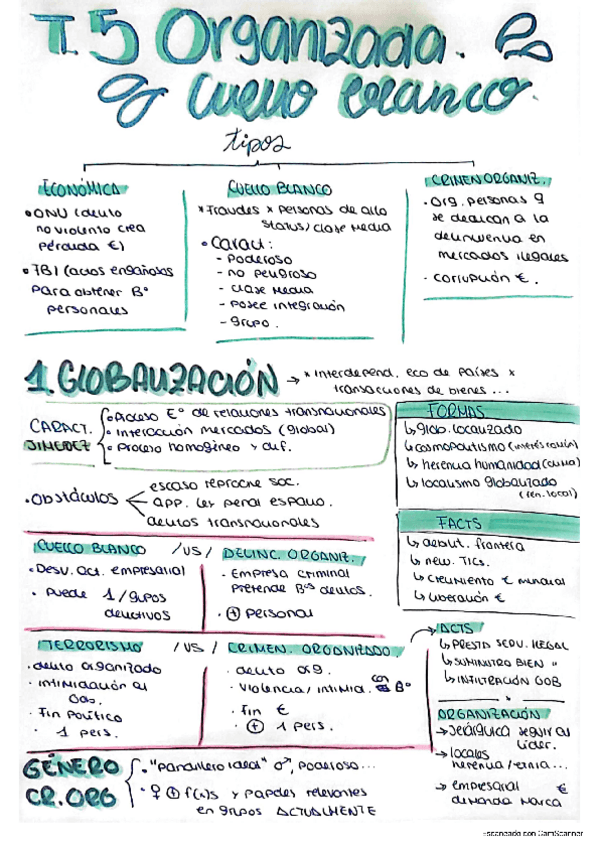 T.5 Organizada.
Cuello blanco.
tipos
ECONÓMICA
• ONU (delito
no violento crea
pérdida €)
• FBI (actos engañosos
para obtener Bº
personales
CUELLO BLANCO
* Fraudes x personas de alto
status / clase media
• Caract:
- Poderoso
- no peligroso
- clase media
- posee integración
- grupo.
CRIMEN ORGANIZ.
• Org. personas q
se dedican a la
delincuencia en
mercados ilegales
- corrupción €.
1. GLOBALIZACIÓN → * interdepend. eco de países x
transacciones de bienes ...
CARACT.
JIMENEZ
• Acceso Eº de relaciones transnacionales
• interacción mercados (global)
• Proceso homogéneo y dif.
• Obstáculos
escaso reproche soc.
app. ley penal españo.
delitos transnacionales
FORMAS
↳ glob. localizado
↳ cosmopolitismo (interés común)
↳ herencia humanidad
↳ localismo globalizado
(fen. local)
FACTS
↳ debilit. frontera
↳ new. TICs.
↳ crecimiento € mundial
↳ liberación €
CUELLO BLANCO /VS/ DELINC. ORGANIZ.
• Desv. act. empresarial
• Puede 1/grupos
delictivos
- Empresa criminal
pretende Bºs delitos.
- ⊕ personal
TERRORISMO /VS/ CRIMEN. ORGANIZADO.
• delito organizado
• intimidación al
Gob.
• Fin político
• 1 pers.
• delito org.
• violencia / intimid. con Bº
• Fin €
• ⊕ 1 pers.
ACTS
↳ PRESTA SERV. ILEGAL
↳ SUMINISTRO BIEN "
↳ INFILTRACIÓN GOB
ORGANIZACIÓN
→ Jerárquica seguir al
líder.
→ locales
herencia / etnia...
→ empresarial €
demanda marca
GÉNERO
CR. ORG
• "Pandillero ideal" ♂, poderoso...
• ♀ ⊕ f(x)s y papeles relevantes
en grupos ACTUALMENTE
Escaneado con CamScanner